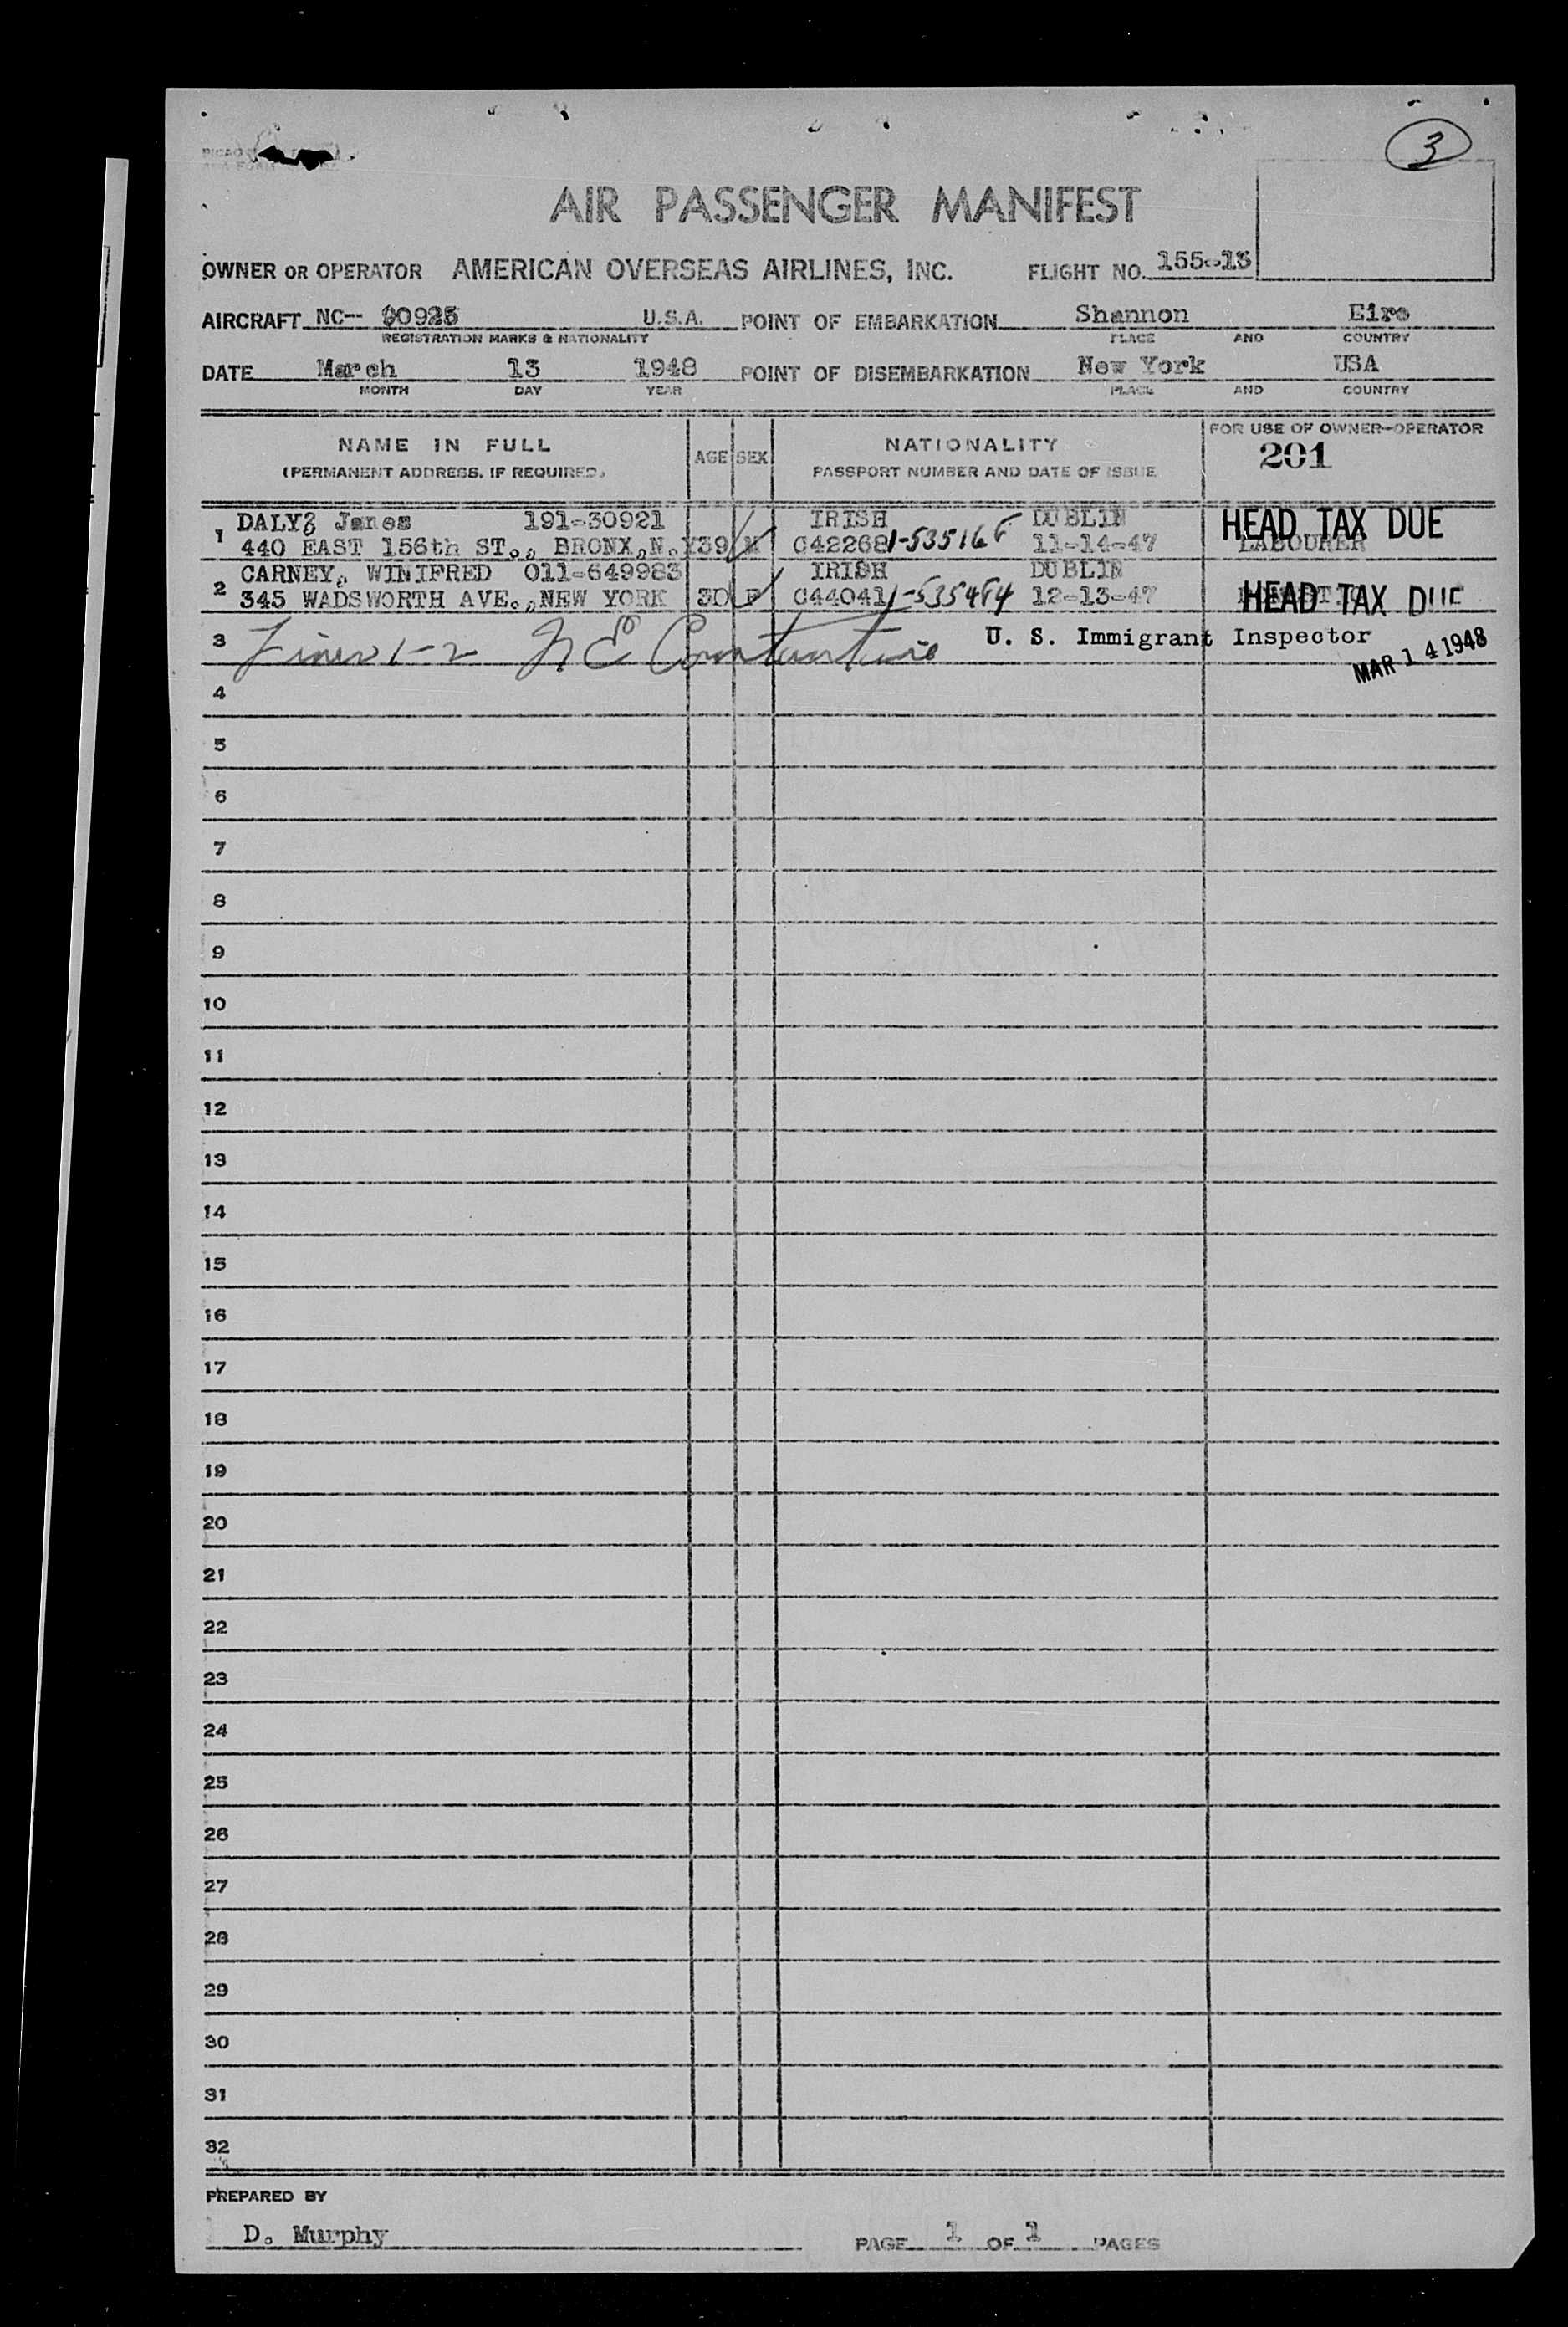 3
AIR PASSENGER MANIFEST
OWNER OR OPERATOR AMERICAN OVERSEAS AIRLINES, INC. FLIGHT NO. 155-13
AIRCRAFT NC-- 90925 U.S.A. POINT OF EMBARKATION Shannon Eire
REGISTRATION MARKS & NATIONALITY PLACE AND COUNTRY
DATE March 13 1948 POINT OF DISEMBARKATION New York USA
MONTH DAY YEAR PLACE AND COUNTRY
NAME IN FULL AGE SEX NATIONALITY FOR USE OF OWNER-OPERATOR
(PERMANENT ADDRESS, IF REQUIRED) PASSPORT NUMBER AND DATE OF ISSUE 201
1 DALY, James 191-30921 IRISH DUBLIN HEAD TAX DUE
440 EAST 156th ST., BRONX,N.Y 39 M C42268 11-14-47 LABOURER
2 CARNEY, WINIFRED 011-649983 IRISH DUBLIN
345 WADSWORTH AVE.,NEW YORK 30 F C44041 1-535484 12-13-47 HEAD TAX DUE
3 Lines 1-2 U. S. Immigrant Inspector
MAR 14 1948
4
5
6
7
8
9
10
11
12
13
14
15
16
17
18
19
20
21
22
23
24
25
26
27
28
29
30
31
32
PREPARED BY
D. Murphy PAGE 1 OF 1 PAGES